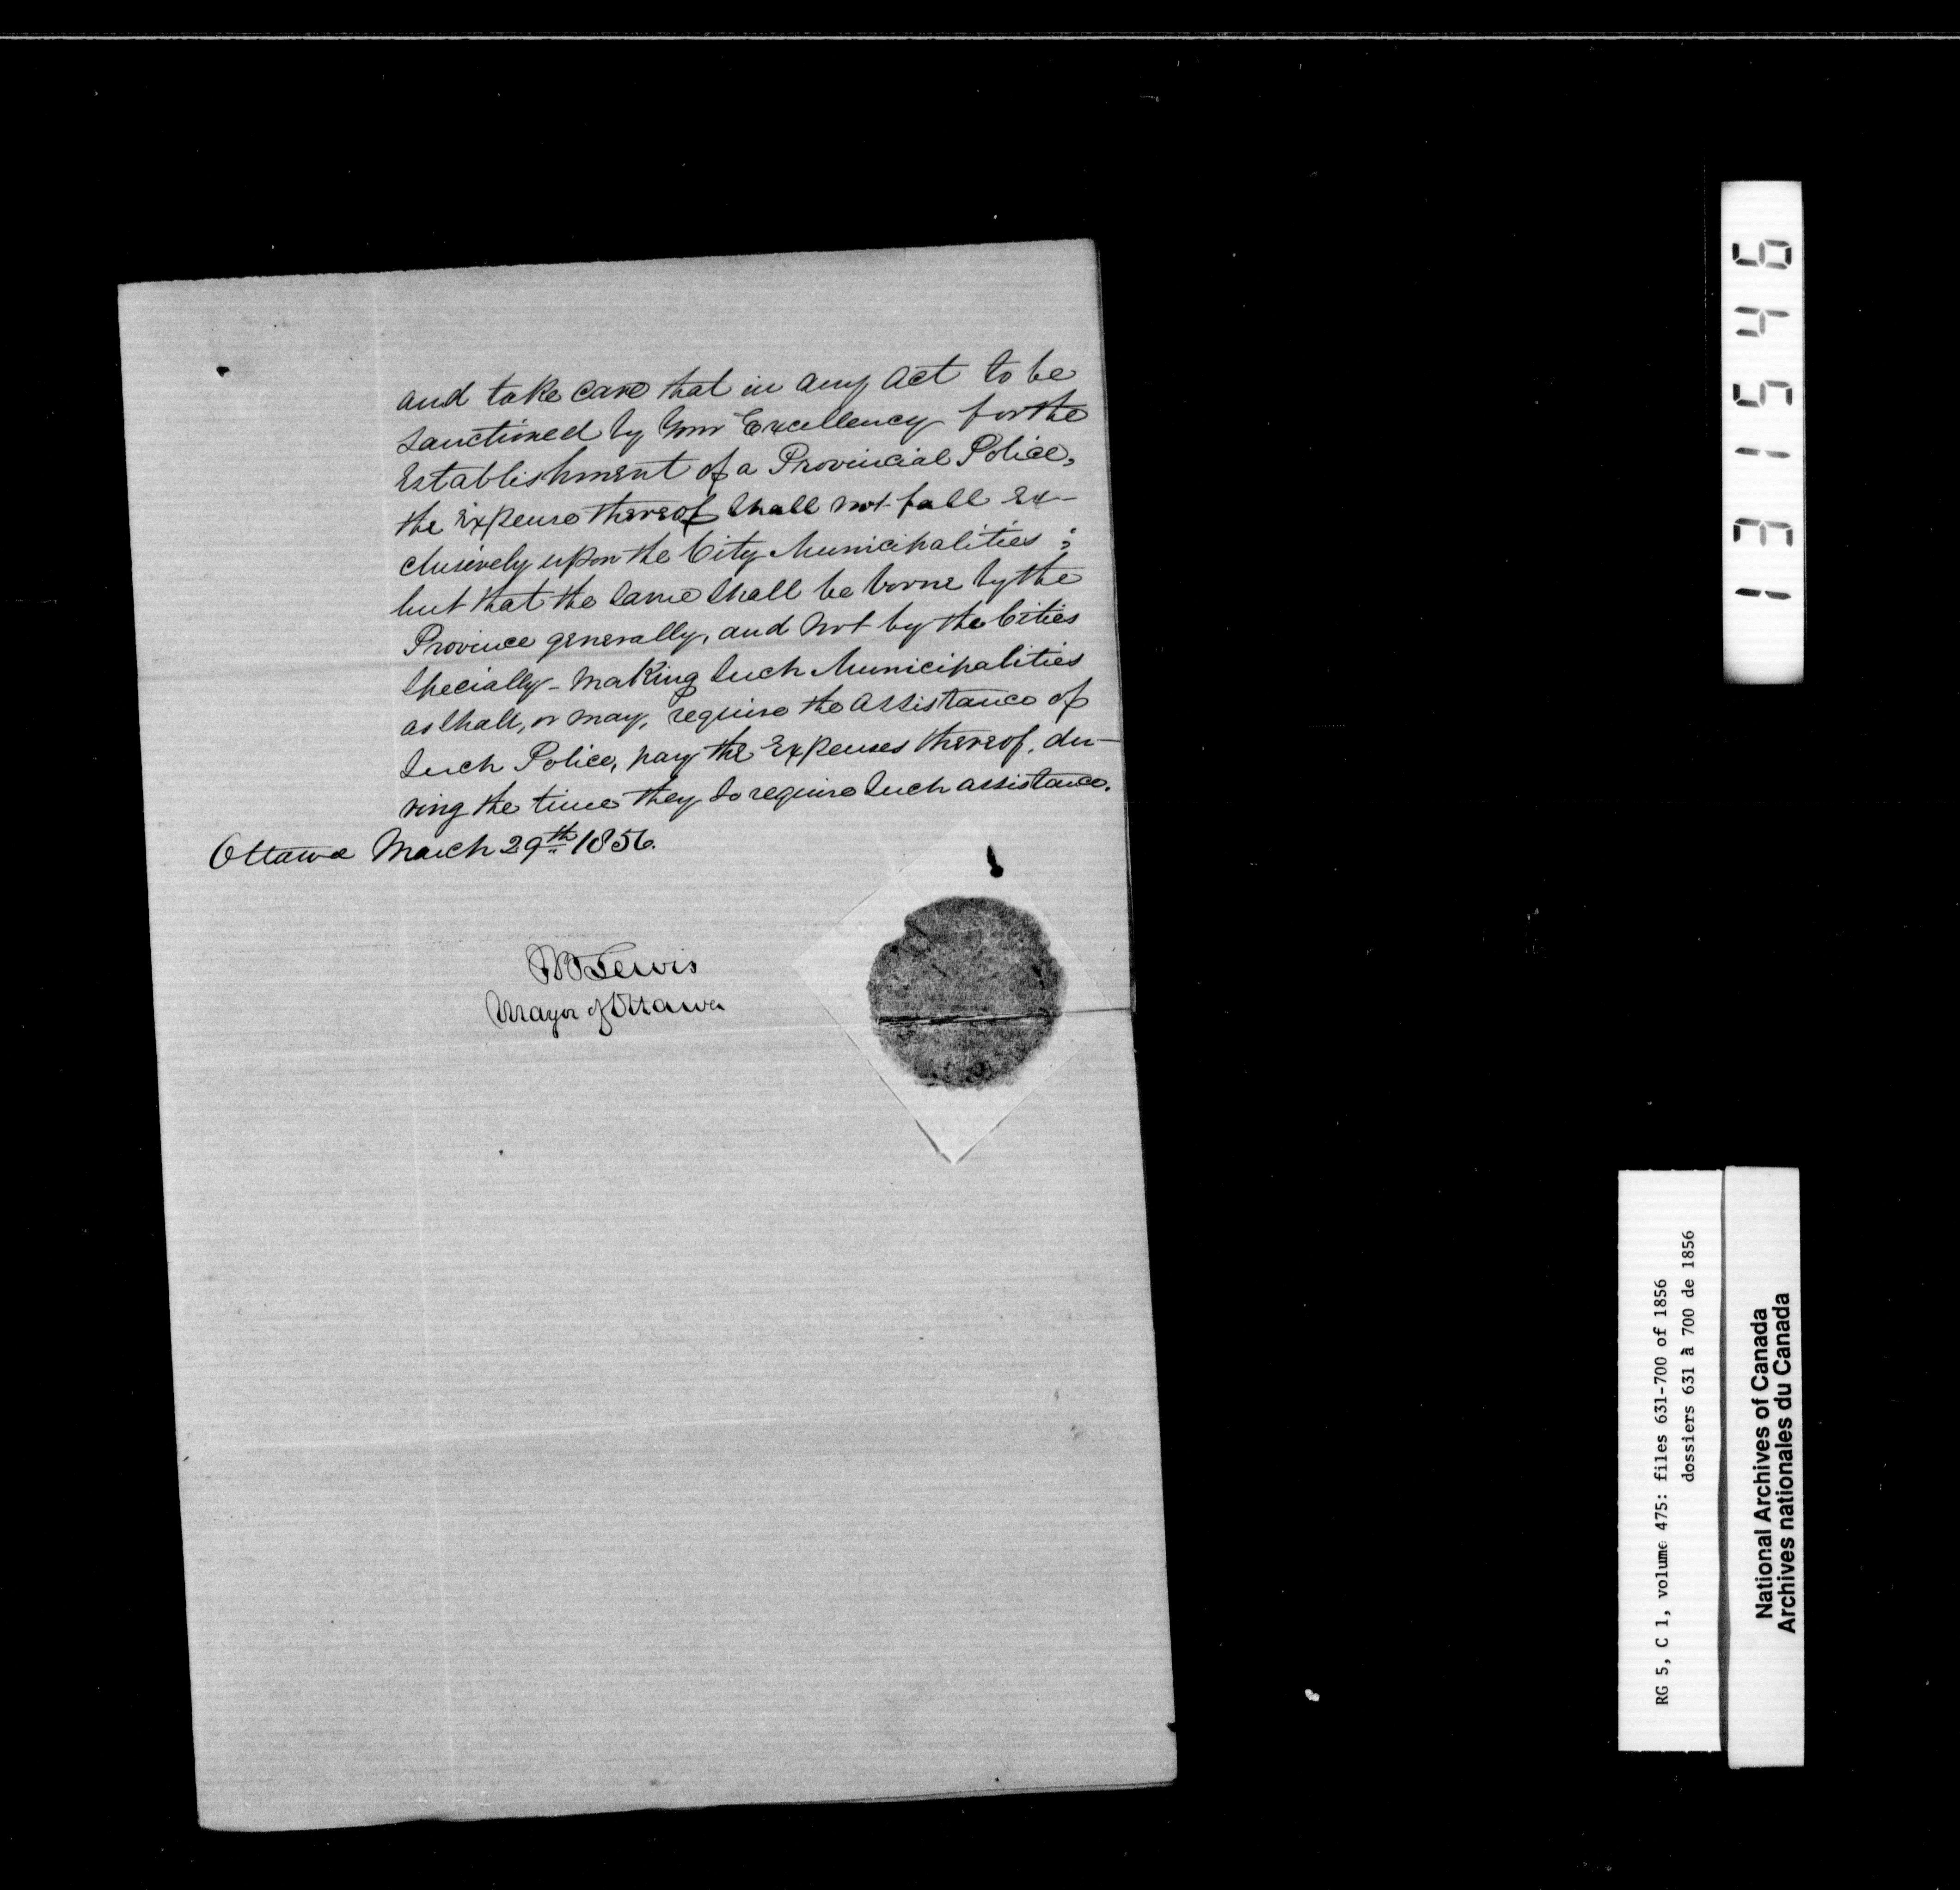 and take care that in any Act to be
sanctioned by Your Excellency for the
Establishment of a Provincial Police,
the Expense thereof shall not fall ex-
clusively upon the City Municipalities;
but that the same shall be borne by the
Province generally, and not by the Cities
specially - making such Municipalities
as shall, or may, require the Assistance of
such Police, pay the Expenses thereof, du-
ring the time they so require such assistance.
Ottawa March 29th 1856.
Lewis
Mayor of Ottawa
131546
RG 5, C 1, volume 475: files 631-700 of 1856
dossiers 631 à 700 de 1856
National Archives of Canada
Archives nationales du Canada